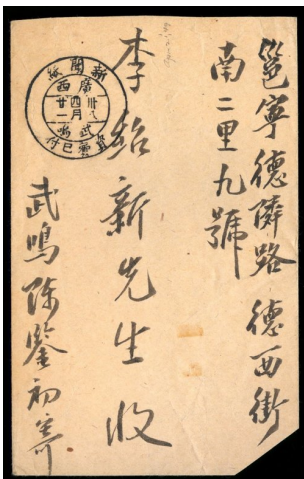 邕寧德隣路德西街
南二里九號
李紹新先生收
武鳴陳鑒初寄
新聞紙
廣西
卅八
四月
廿一
武鳴
已付